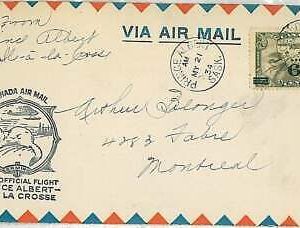 From
Prince Albert
Ile-à-la-Crosse
VIA AIR MAIL
PRINCE ALBERT
AM
MY 21
34
SASK.
CANADA AIR MAIL
OFFICIAL FLIGHT
CE ALBERT-
LA CROSSE
Arthur Belanger
4283 Fabre
Montreal